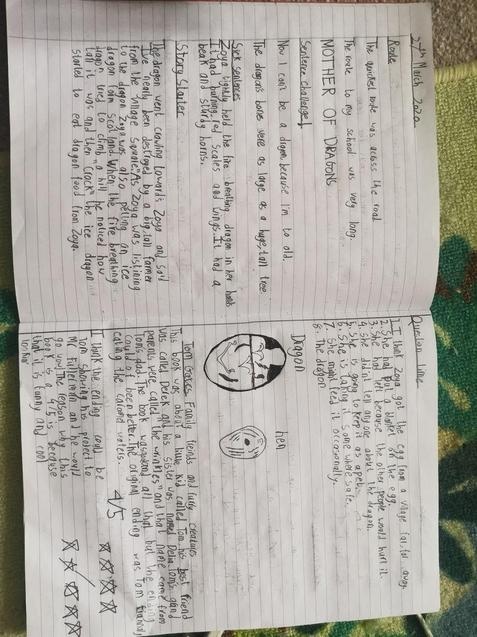 27th March 2020
Route
The quickest route was across the road.
The route to my school was very long.
MOTHER OF DRAGONS
Sentence challenge!
Now I can't be a dragon because I'm to old.
The dragons bones were as large as a huge, tall tree.
Sick sentences
Zoya tightly held the fire breathing dragon in her hands
It had burning, red scales and wings. It had a
beak and sturdy horns.
Story Starter
The dragon went crawling towards Zoya and said
I've nearly been destroyed by a big, tall farmer
from the village square" As Zoya was listining
to the dragon Zoya was also petting an ice
dragon from scotland. When the fire breathing
dragon tried to climb a hill he noticed how
it was and then "Crack" the ice dragon
started to eat dragon food from Zoya.
Question time
1. I that Zoya got the egg from a village far, far away.
2. She had put a blanket for the egg.
3. She had left because the other people would hurt it.
4. She didn't tell anyone about the dragon.
5. She is going to keep it as a pet.
6. She is taking it some where safe.
7. She might feed it occasionally.
8. The dragon
Dragon
hen
Tom Gates Family, friends and furry creatures
This book was about a little kid called Tom his best friend
was called Derek and his sister was named Delia. toms grand
parents were called "the wrinkles" and that name came from
Toms dad. The book was all that but the ending
could have been better. The original ending was Tom
eating the caramel wafers.
4/5
I think the ending could be
Tom showing his project to
Mr Fullerman and he would
go wow. The reason why this
book is a 4/5 is because
that it is funny and cool